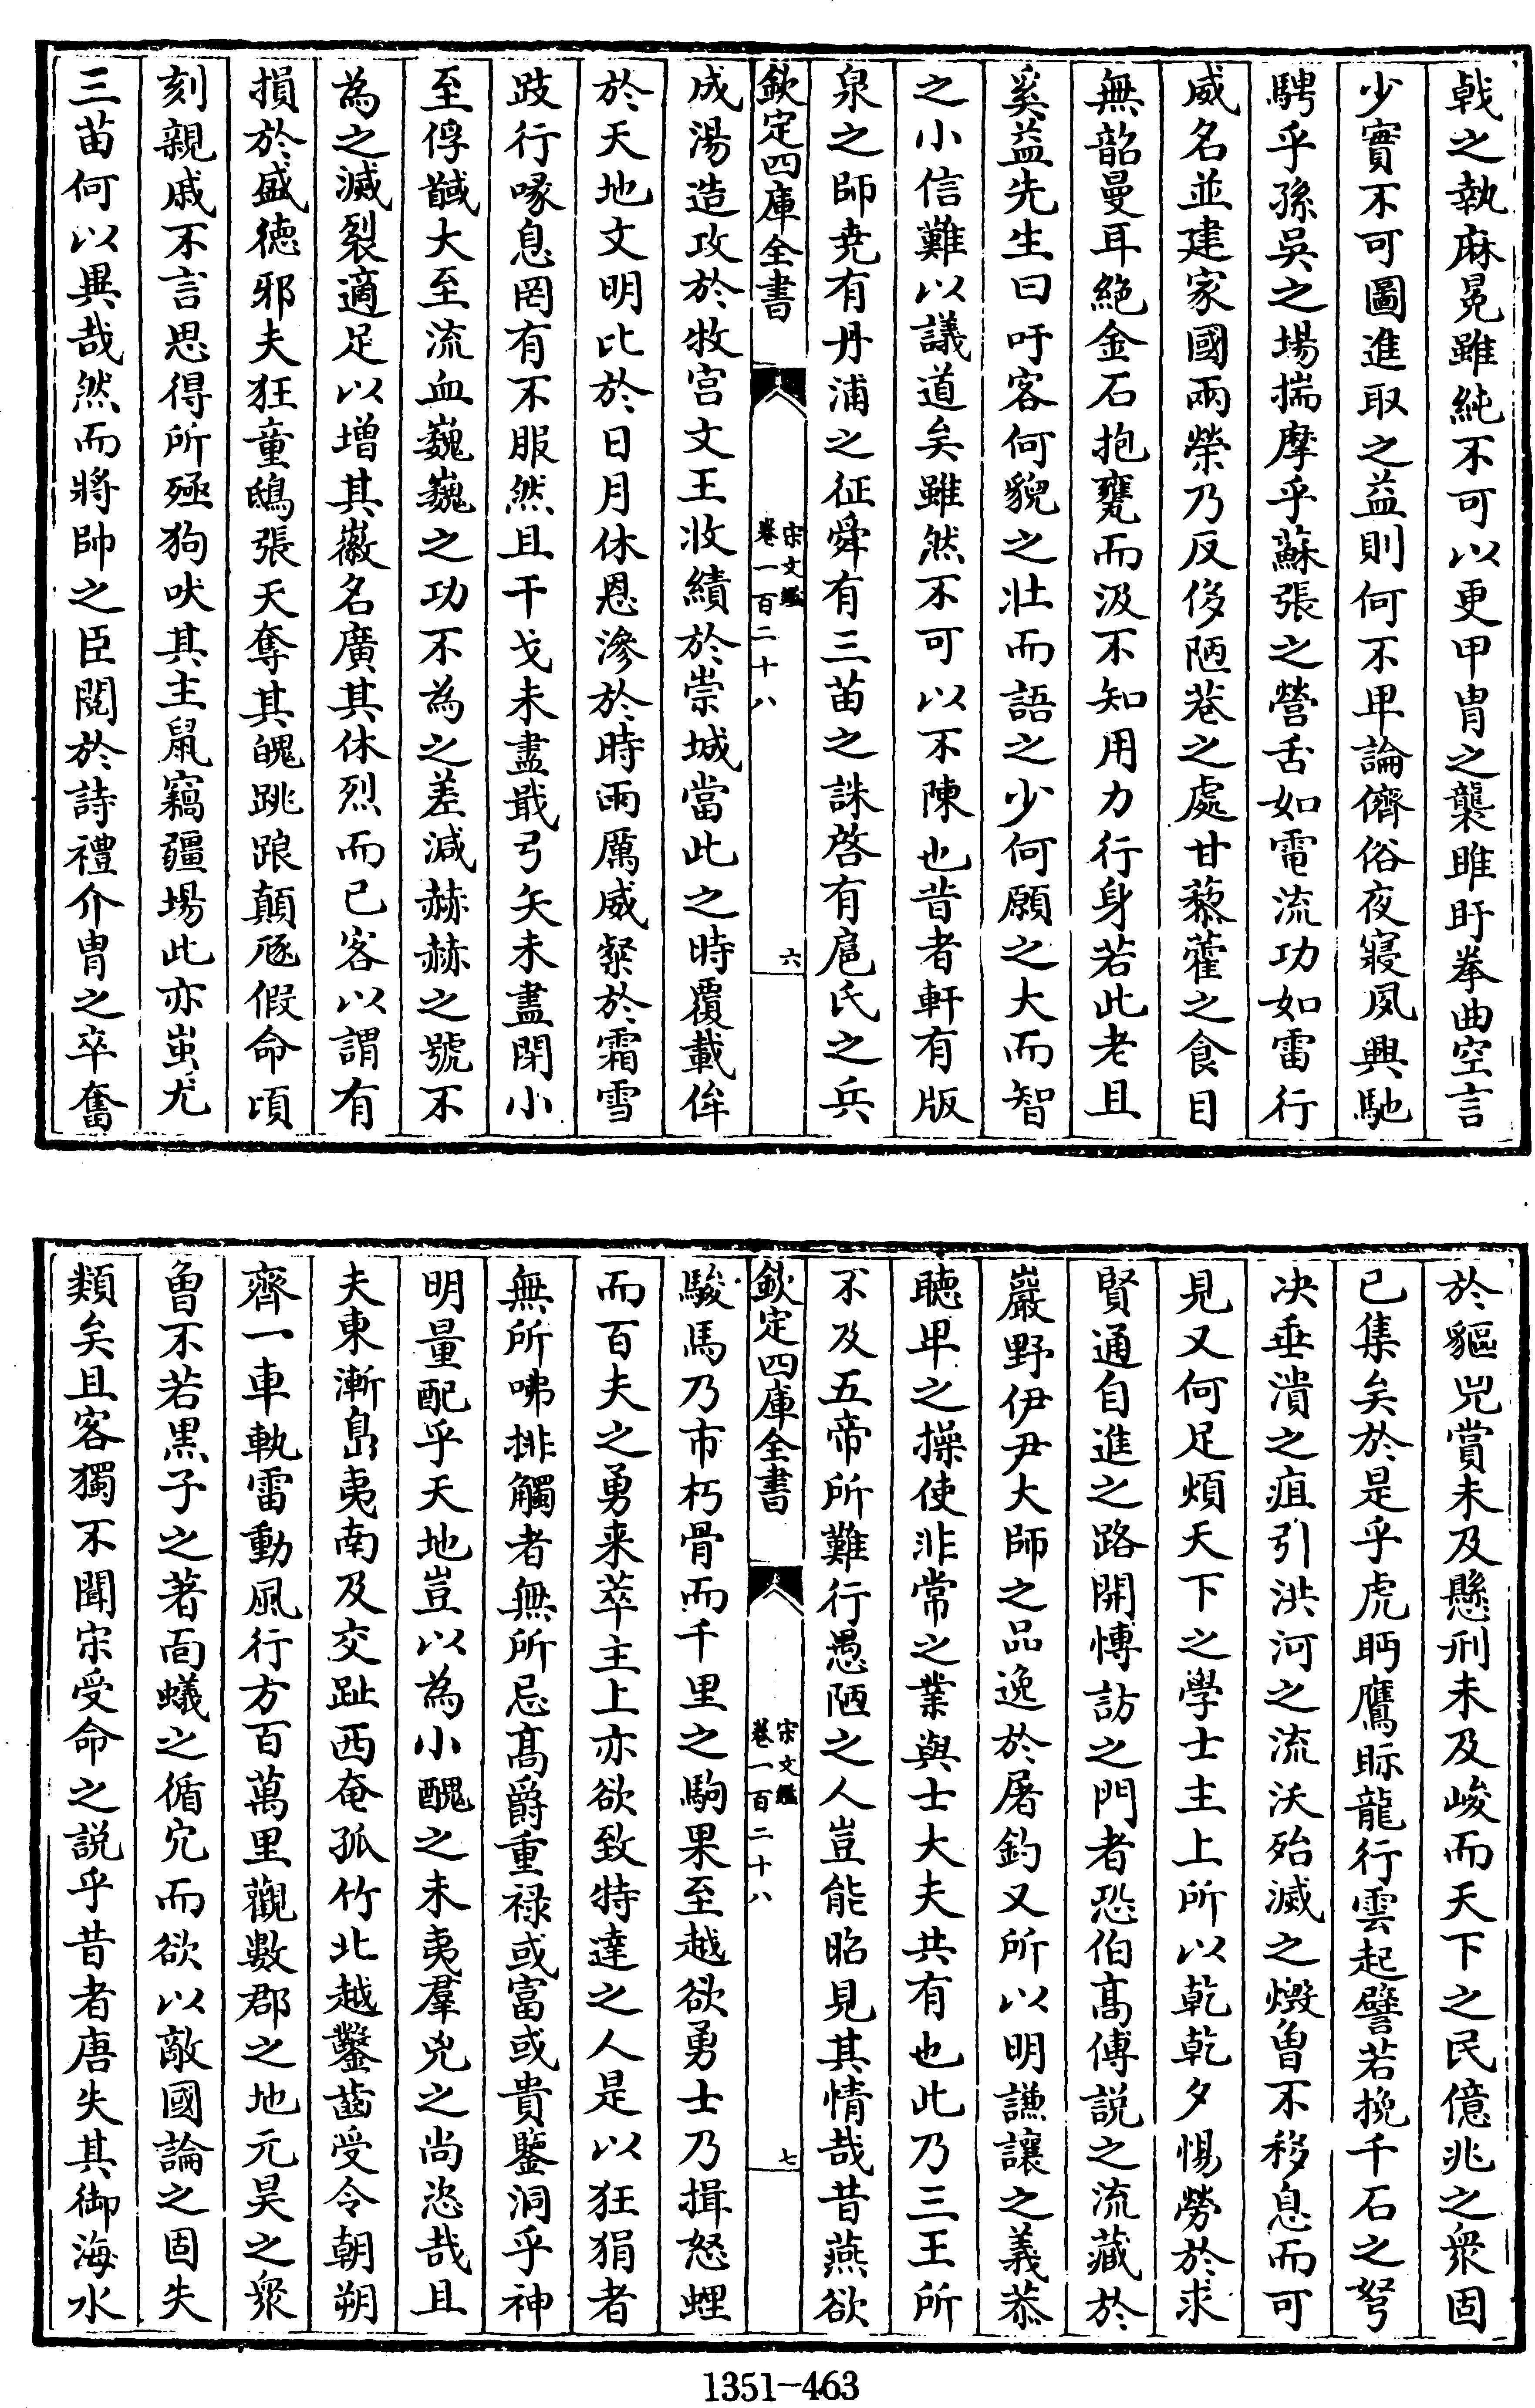 戟之執麻冕雖純不可以更甲冑之襲睢盱拳曲空言
少實不可圖進取之益則何不卑論儕俗夜寢夙興馳
騁乎孫吳之場揣摩乎蘇張之營舌如電流功如雷行
威名並建家國兩榮乃反侈陋巷之處甘藜藿之食目
無韶曼耳絶金石抱甕而汲不知用力行身若此老且
奚益先生曰吁客何貌之壯而語之少何願之大而智
之小信難以議道矣雖然不可以不陳也昔者軒有版
泉之師堯有丹浦之征舜有三苗之誅啓有扈氏之兵
欽定四庫全書
宋文鑑
卷一百二十八
六
成湯造攻於牧宫文王收績於崇城當此之時覆載侔
於天地文明比於日月休恩滲於時雨厲威粲於霜雪
跂行喙息罔有不服然且干戈未盡戢弓矢未盡閉小
至俘馘大至流血巍巍之功不為之差減赫赫之號不
為之滅裂適足以增其徽名廣其休烈而已客以謂有
損於盛徳邪夫狂童鴟張天奪其魄跳踉顛隊假命頃
刻親戚不言思得所殛狗吠其主鼠竊疆場此亦蚩尤
三苗何以異哉然而將帥之臣閱於詩禮介冑之卒奮
於驅兕賞未及懸刑未及峻而天下之民億兆之衆固
已集矣於是乎虎眄鷹眎龍行雲起譬若挽千石之弩
决垂潰之疽引洪河之流沃殆滅之燬曽不移息而可
見又何足煩天下之學士主上所以乾乾夕惕勞於求
賢通自進之路開愽訪之門者恐伯髙傅説之流藏於
巖野伊尹大師之品逸於屠釣又所以明謙讓之義恭
聽卑之操使非常之業與士大夫共有也此乃三王所
不及五帝所難行愚陋之人豈能昭見其情哉昔燕欲
欽定四庫全書
宋文鑑
卷一百二十八
七
駿馬乃市朽骨而千里之駒果至越欲勇士乃揖怒蛙
而百夫之勇来萃主上亦欲致特達之人是以狂狷者
無所咈排觸者無所忌髙爵重禄或富或貴鑒洞乎神
明量配乎天地豈以為小醜之未夷羣兇之尚恣哉且
夫東漸島夷南及交趾西奄孤竹北越鑿齒受令朝朔
齊一車軌雷動風行方百萬里觀數郡之地元昊之衆
曽不若黒子之著面蟻之循宂而欲以敵國論之固失
類矣且客獨不聞宋受命之説乎昔者唐失其御海水
1351-463